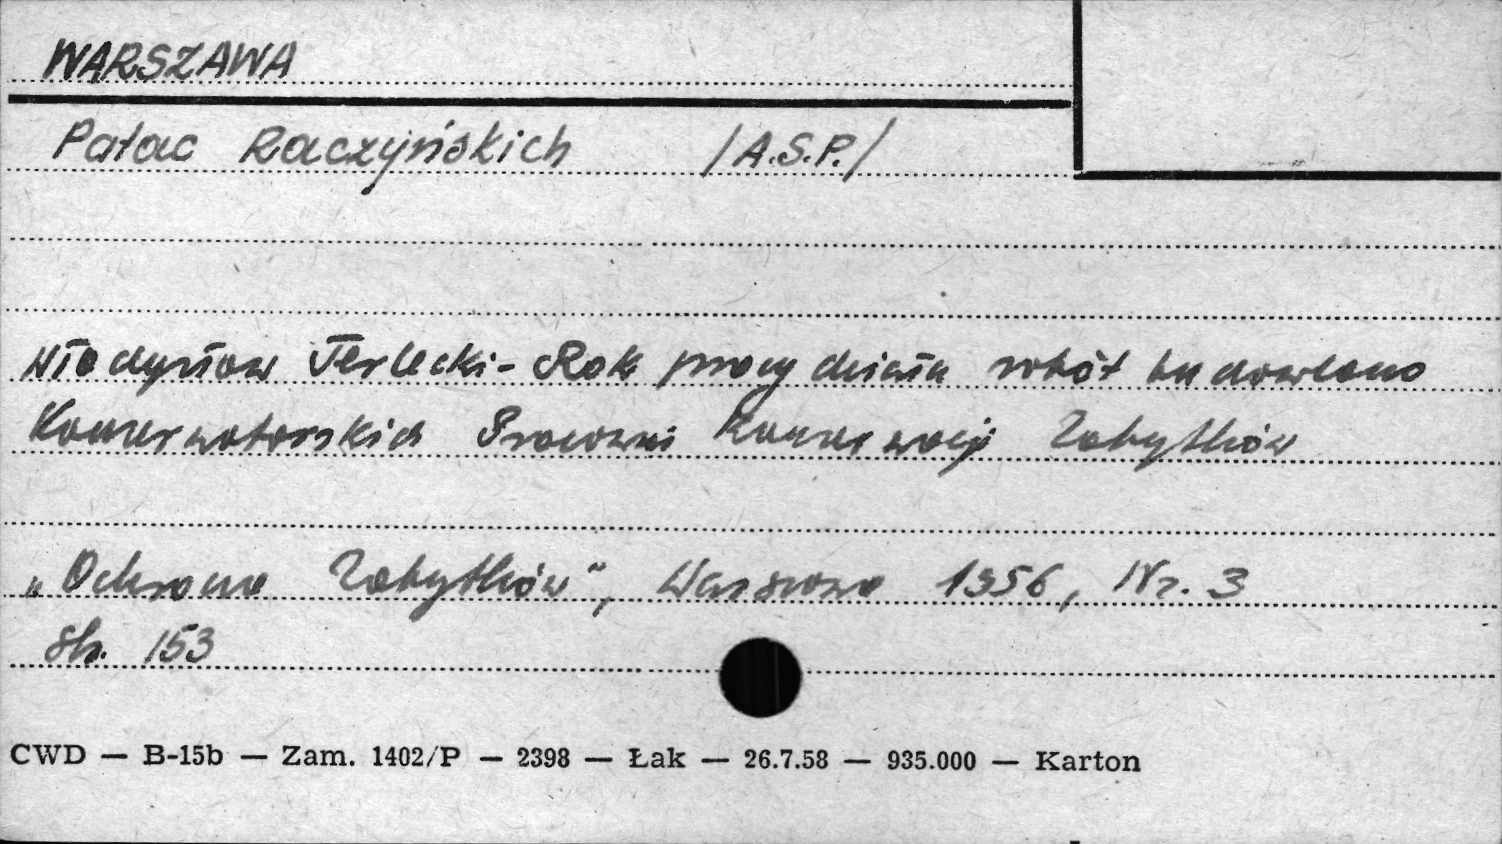 WARSZAWA
Pałac Raczyńskich /A.S.P./
Władysław Terlecki - Rok pracy działu robót budowlano
Konserwatorskich Pracowni Konserwacji Zabytków
„Ochrona Zabytków", Warszawa 1956, Nr. 3
str. 153
CWD — B-15b — Zam. 1402/P — 2398 — Łak — 26.7.58 — 935.000 — Karton